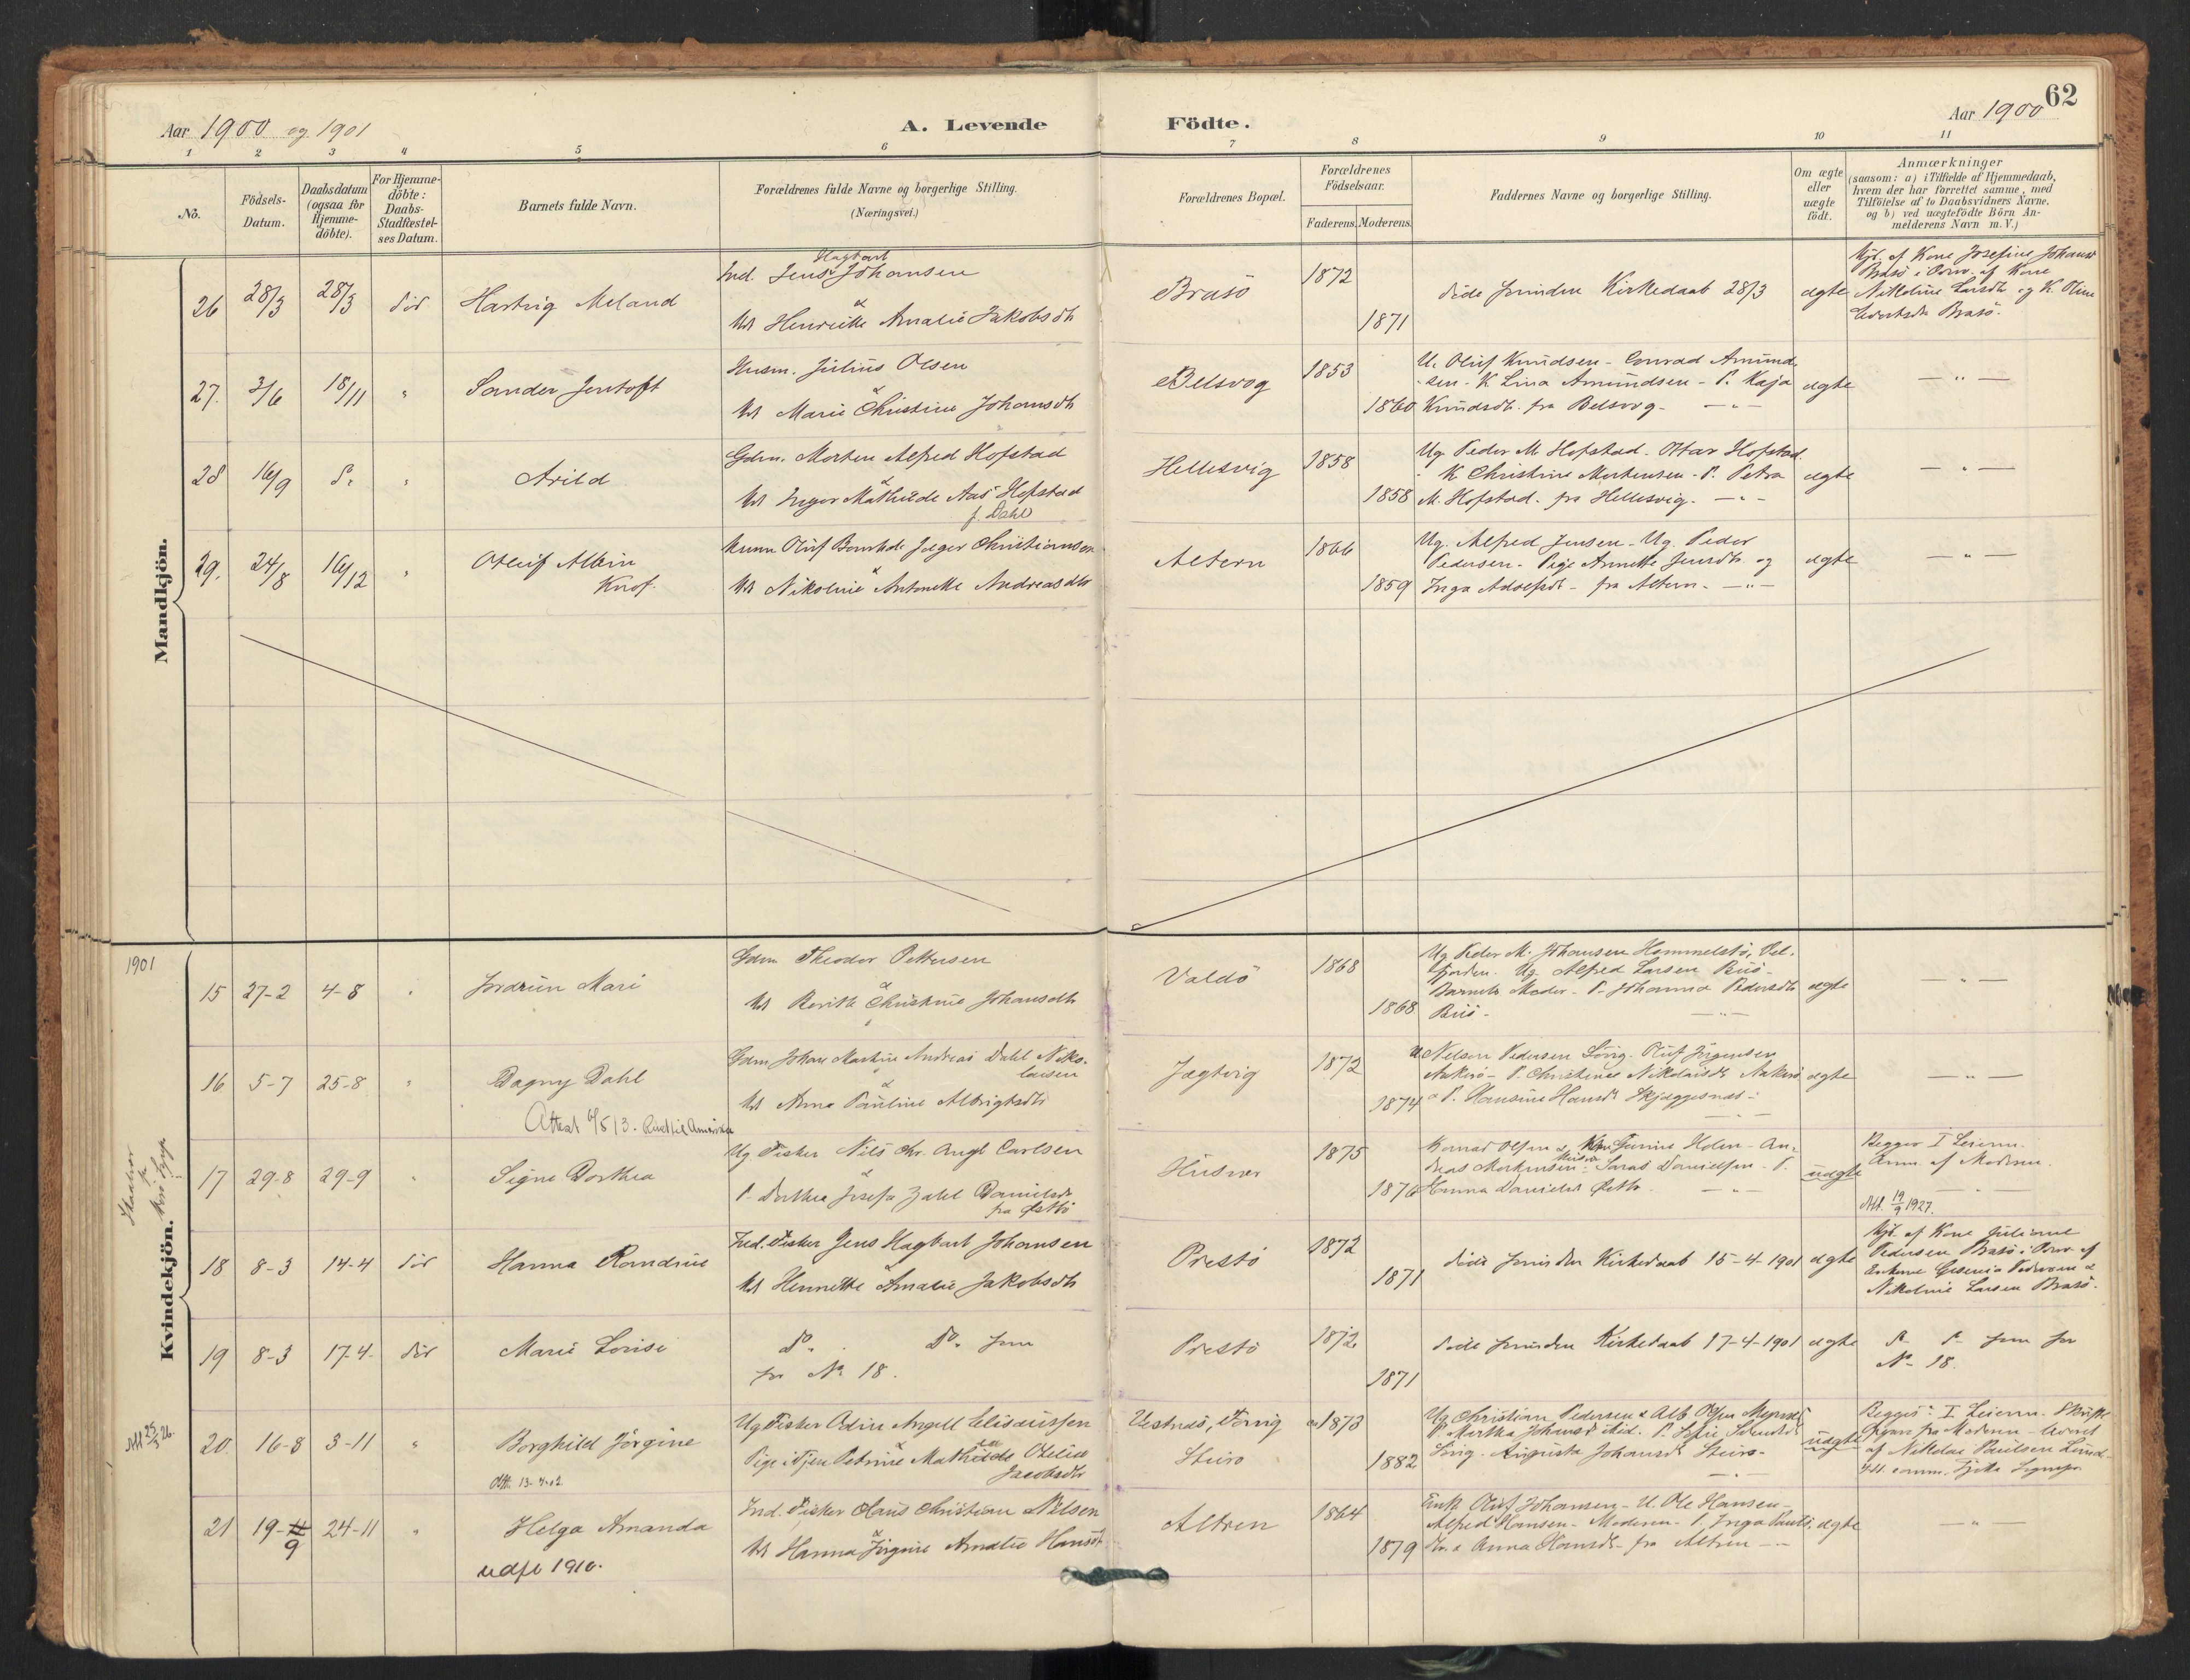 62
Aar 1900 og 1901
A. Levende Födte.
Aar 1900
1 2 3 4 5 6 7 8 9 10 11
No.
Födsels-
Datum.
Daabsdatum
(ogsaa for
Hjemme-
döbte).
For Hjemme-
döbte:
Daabs-
Stadfæstel-
ses Datum.
Barnets fulde Navn.
Forældrenes fulde Navne og borgerlige Stilling.
(Næringsvei.)
Forældrenes Bopæl.
Forældrenes
Födselsaar.
Faderens. Moderens.
Faddernes Navne og borgerlige Stilling.
Om ægte
eller
uægte
födt.
Anmærkninger
(saasom: a) i Tilfælde af Hjemmedaab,
hvem der har forrettet samme, med
Tilföielse af to Daabsvidners Navne,
og b) ved uægtefödte Börn An-
melderens Navn m. V.)
Mandkjön.
26 28/3 28/3 död Hartvig Meland
Ind. Jens Hagbart Johansen
&
H. Henriette Amalie Jakobsdt
Brasö 1872
1871
døde forinden Kirkedaab 28/3
ægte
Hjd. af Kone Josefine Johans
Brasö i Overv. af Kone
Nikoline Larsdt og K. Oline
Brasö.
27. 3/6 18/11 " Sander Jentoft
Husm. Julius Olsen
&
H. Marie Christine Johansdt
Belsvog 1853
1860
U. Oluf Knudsen - Conrad Amund-
sen - K Lina Amundsen - P. Kaja
Knudsdt. fra Belsvog - — " —
ægte — " —
28 16/9 Do " Arild
Gdm. Morten Alfred Hofstad
&
H. Inger Mathilde Aas Hofstad
f. Dahl
Hellesvig 1858
1858
Ug. Peder M. Hofstad. Ottar Hofstad.
K Christine Mortensen - P. Petra
M. Hofstad. fra Hellesvig. — " —
ægte — " —
29. 24/8 16/12 " Oluf Albin
Knof.
Oluf Jæger Christiansen
&
H. Nikoline Antonette Andreasdtr
Altern 1866
1859
Ug. Alfred Jensen - Ug. Peder
Pedersen - Pige Annette Jensdt. og
Inga Adolfsdt - fra Altern. — " —
ægte — " —
1901
Kvindekjön.
15 27-2 4-8 " Jordrun Mari
Gdm Theodor Pettersen
&
H. Berith Christine Johansdtr
Valdö 1868
1868
Ug Peder M. Johansen Hommelstö, Vel-
fjorden. Ug Alfred Larsen
Barnets Moder - P. Johanna Pedersdtr
ægte — " —
16 5-7 25-8 " Dagny Dahl
Attest 6/5 13. Amerika
Gdm Johan Martin Andreas Dahl Niko-
laisen
&
H. Anna Pauline Albrigtsdtr
Jægtvig 1872
1874
U Nelson Pedersen Sörvig. Oluf Jörgensen
P. Christense Nikolaisdt
& P. Hansine Hansdt Skjæggesnæs -
ægte — " —
17 29-8 29-9 " Signe Dorthea
Ug Fisker Nils Chr. Angl Carlsen
&
P. Dorthea Josefa Zahl Danielsdt
fra Östbö
Husvær 1875
1876
Konrad Olsen & Junius Holen - An-
dreas Mortensen - Saras Danielsen - P.
Hanna Danielsdt Østb. — " —
uægte
Begges I Leierm.
Anm. af Moderen.
Att. 19/9 1927.
18 8-3 14-4 död Hanna Romdrine
Ind. Fisker Jens Hagbart Johansen
&
H. Henriette Amalie Jakobsdt
Prestö 1872
1871
døde forinden Kirkedaab 15-4-1901
ægte
Hjd. af Kone Juliane
Pedersen Brasö i Overv. af
Nikoline Larsen Brasö.
19 8-3 17-4 död Marie Lovise
Do. Do. som
for No 18.
Prestö 1872
1871
døde forinden Kirkedaab 17-4-1901
ægte
Do Do som for
No 18.
Att 25/3 26.
20 16-8 3-11 " Borghild Jörgine
Att. 13-4-12
Ug Fisker Odin Angell Elisæussen
&
Pige i Tjen Petrine Mathilde Otelie
Jacobsdtr
Vestnæs, Törvig
Steirö 1873
1882
Ug Christian Pedersen & Alb. Olsen
P. Martha Johansdt
Sörvig. Augusta Johansdt Steirö -
uægte
Begges I Leierm. Skriftl.
fra Moderen - leveret
af Nikolai Paulsen
21 19-11 9 24-11 " Helga Amanda
udfl 1910.
Ind. Fisker Hans Christian Nilsen
&
H. Hanna Jörgine Amalie Hansdt
Altren 1864
1879
Enkm Oluf Johansen - U. Ole Hansen -
Alfred Hansen - Moderen - P. Inga Pauls-
dtr & Anna Hansdt - fra Altren —
ægte — " —